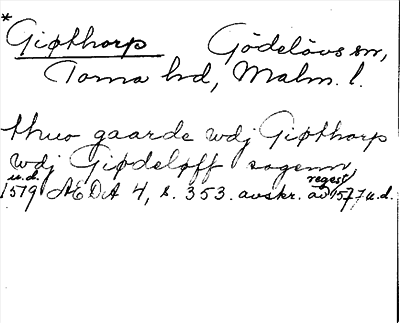 * Giøthorp Gödelövs sn,
Torna hd, Malm. l.
thuo gaarde wdj Giøthorp
wdj Giødeløff sogenn,
u.d.
1579 ÆDA 4, s. 353. avskr. av regest, 1577 u.d.